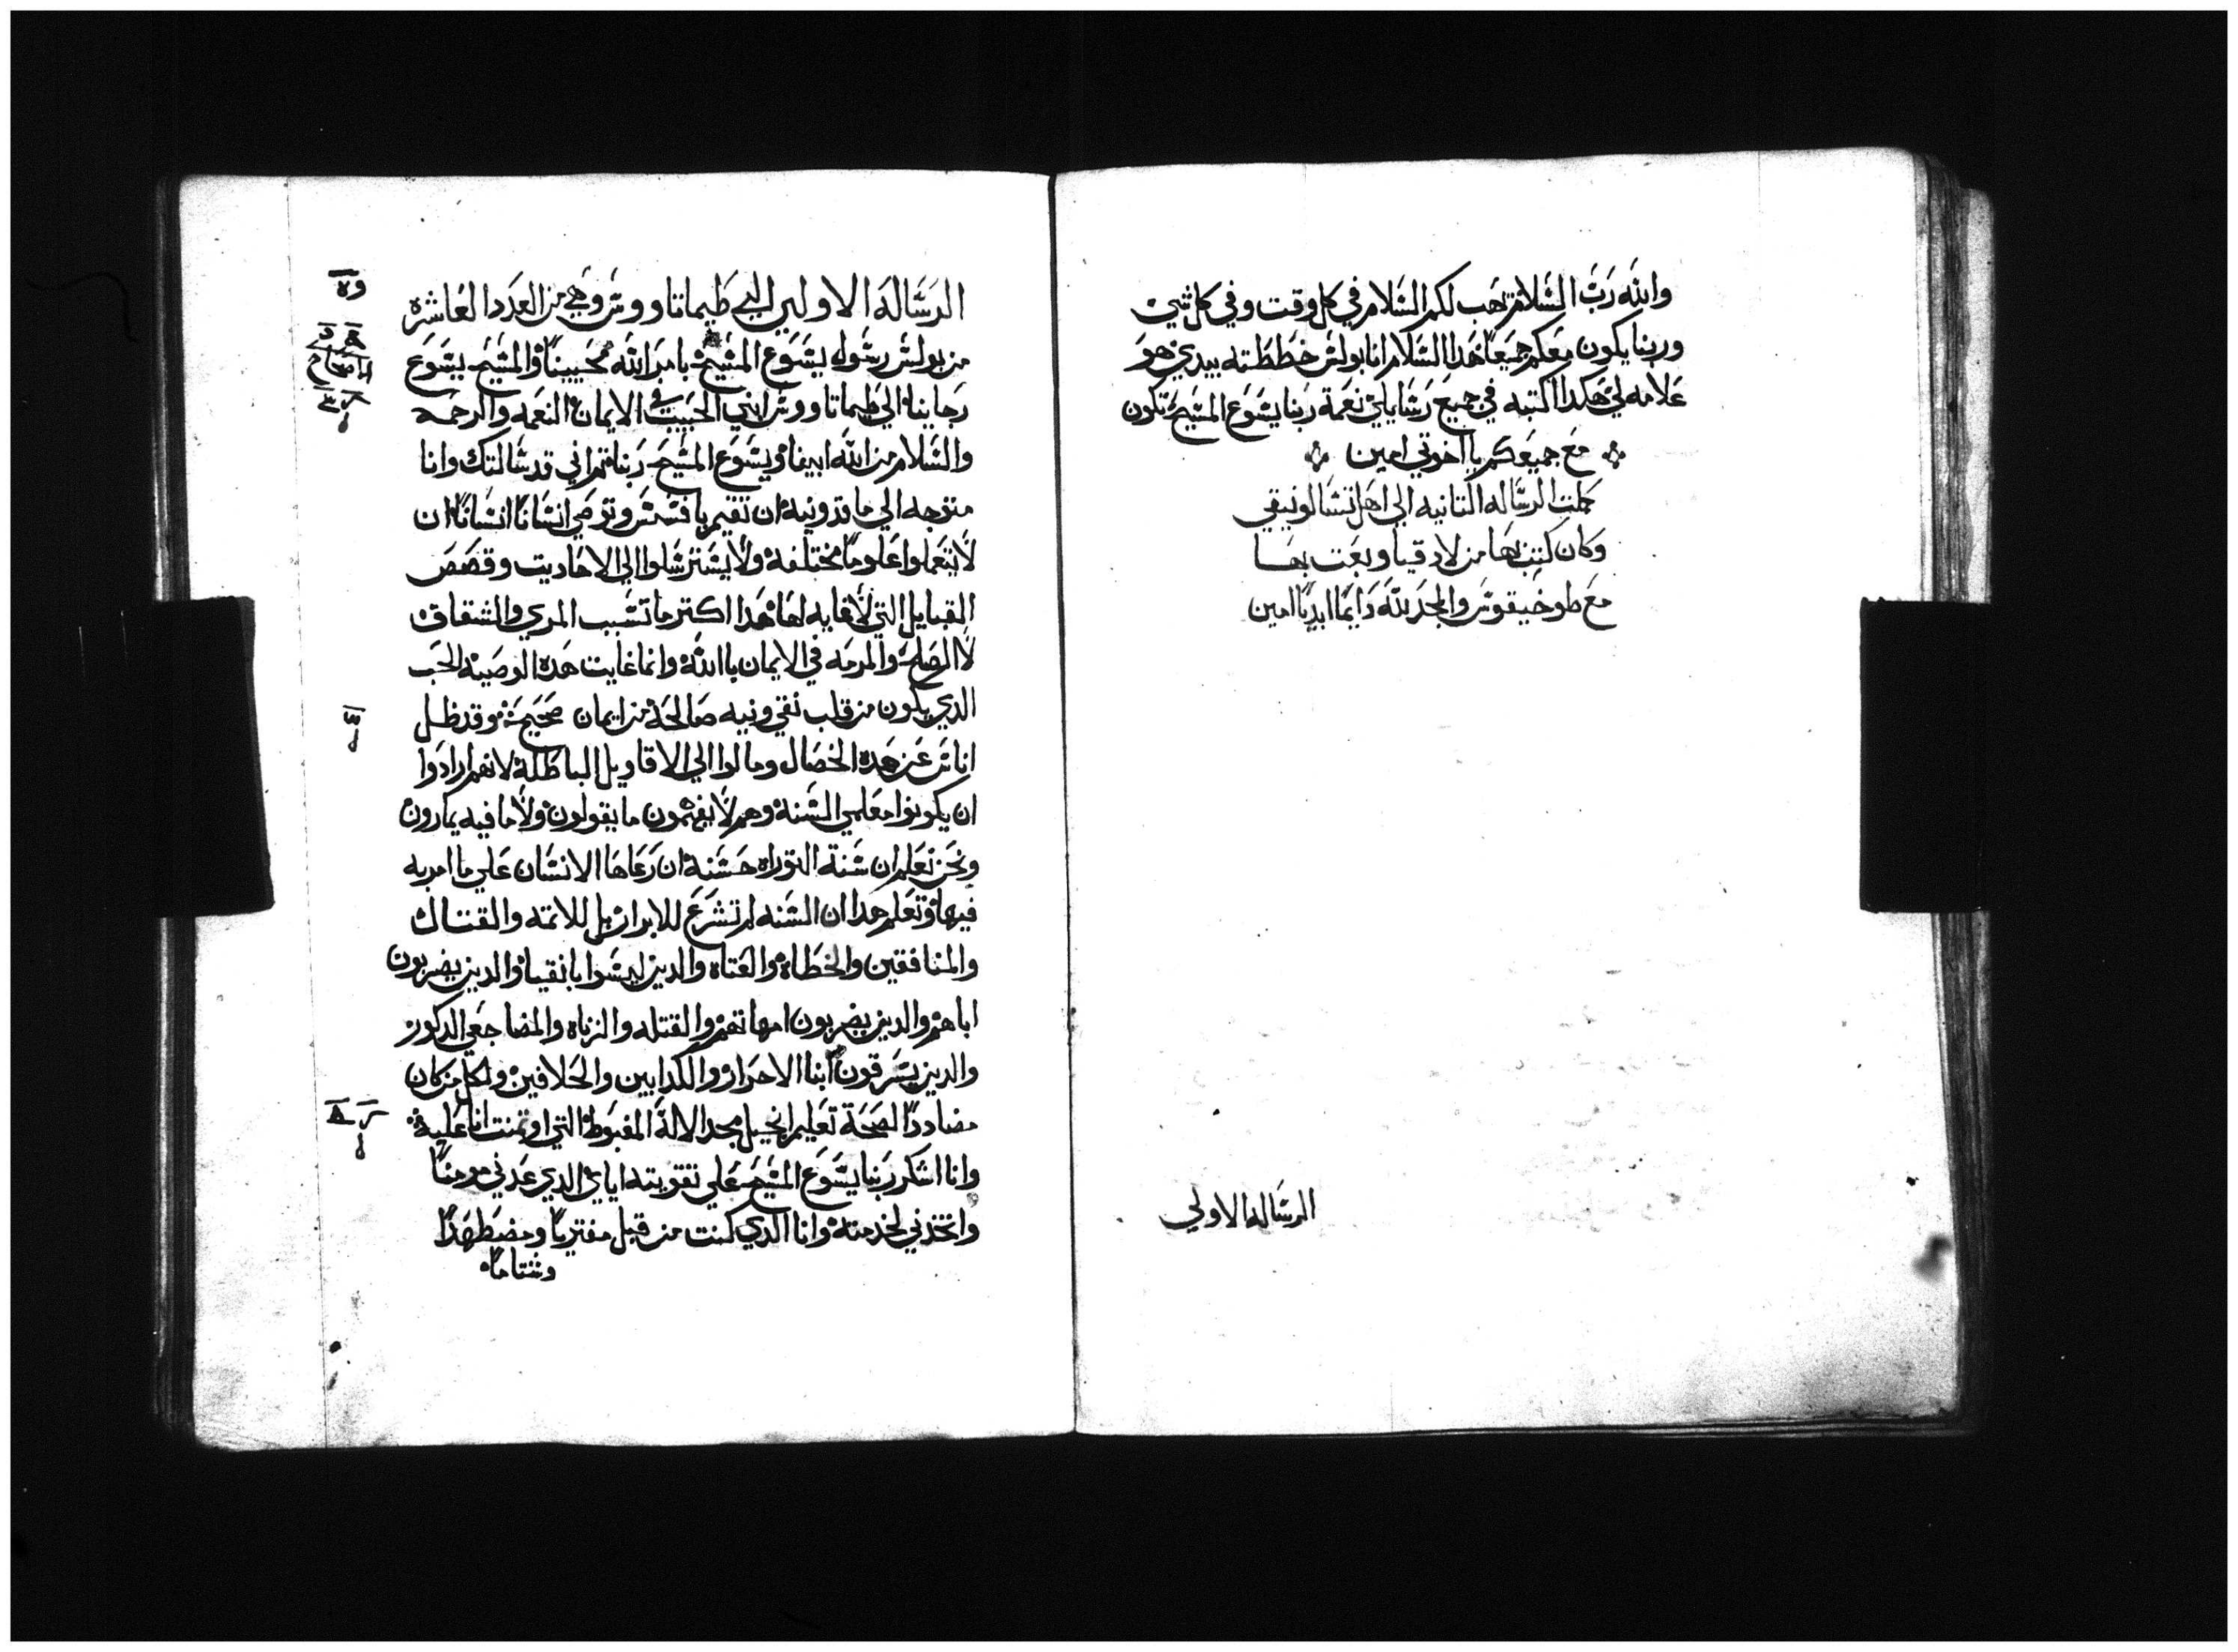 والله رب السلام يهب لكم السلام في كل وقت وفي كل شي
وربنا يكون معكم جميعا هدا السلام انا بولس خططته بيدي هو
علامه لي هكدا اكتبه في جميع رسايلي نعمة ربنا يسوع المسيح تكون
مع جميعكم يا اخوتي امين
كملت الرساله التانيه الي اهل تسالونيقي
وكان كتب بها من لادقيا وبعت بها
مع طوخيقوس والمجد لله دايما ابديا امين
الرساله الاولي
الرساله الاولي الي طيماتاووس وهي من العدد العاشره
من بولس رسول يسوع المسيح بامر الله محيينا والمسيح يسوع
رجاينا الي طيماتاووس ابني الحبيب في الايمان النعمه والرحمه
والسلام من الله ابينا ويسوع المسيح ربنا ثم اني قد سالتك وانا
متوجه الي ماقدونيه ان تقيم بافسس وتوصي انسانا انسانا ان
لا يتعملوا علوما مختلفه ولا يسترسلوا الي الاحاديت وقصص
القبايل التي لا غايه لها هدا اكتر ما تسبب المري والشقاق
لا الصلح والمرمه في الايمان باالله وانما غايت هده الوصيه الحب
الدي يكون من قلب نقي ونيه صالحة من ايمان صحيحه وقد ظل
اناس عن هده الخصال ومالوا الي الاقاويل الباطلة لانهم ارادوا
ان يكونوا معلمي السنة وهم لا يفهمون ما يقولون ولا ما فيه يمارون
ونحن نعلم ان سنة التوراه حسنة ان رعاها الانسان علي ما امر به
فيها ونعلم هدا ان السنه لم تشرع للابرار بل للاتمه والقتاك
والمنافقين والخطاه والعتاه والدين ليسوا بانقيا والدين يضربون
اباهم والدين يضربون امهاتهم والقتله والزناه والمضاجعي الدكور
والدين يسرقون ابنا الاحرار والكدابين والحلافين ولكل من كان
مضاددا لصحة تعليم انجيل مجد الاله المغبوط التي اوتمنت انا عليه
وانا اشكر ربنا يسوع المسيح علي تقويته اياي الدي عدني مومنا
واتخدني لخدمته وانا الدي كنت من قبل مفتريا ومضطهدا
وشتاما
الاصحاح